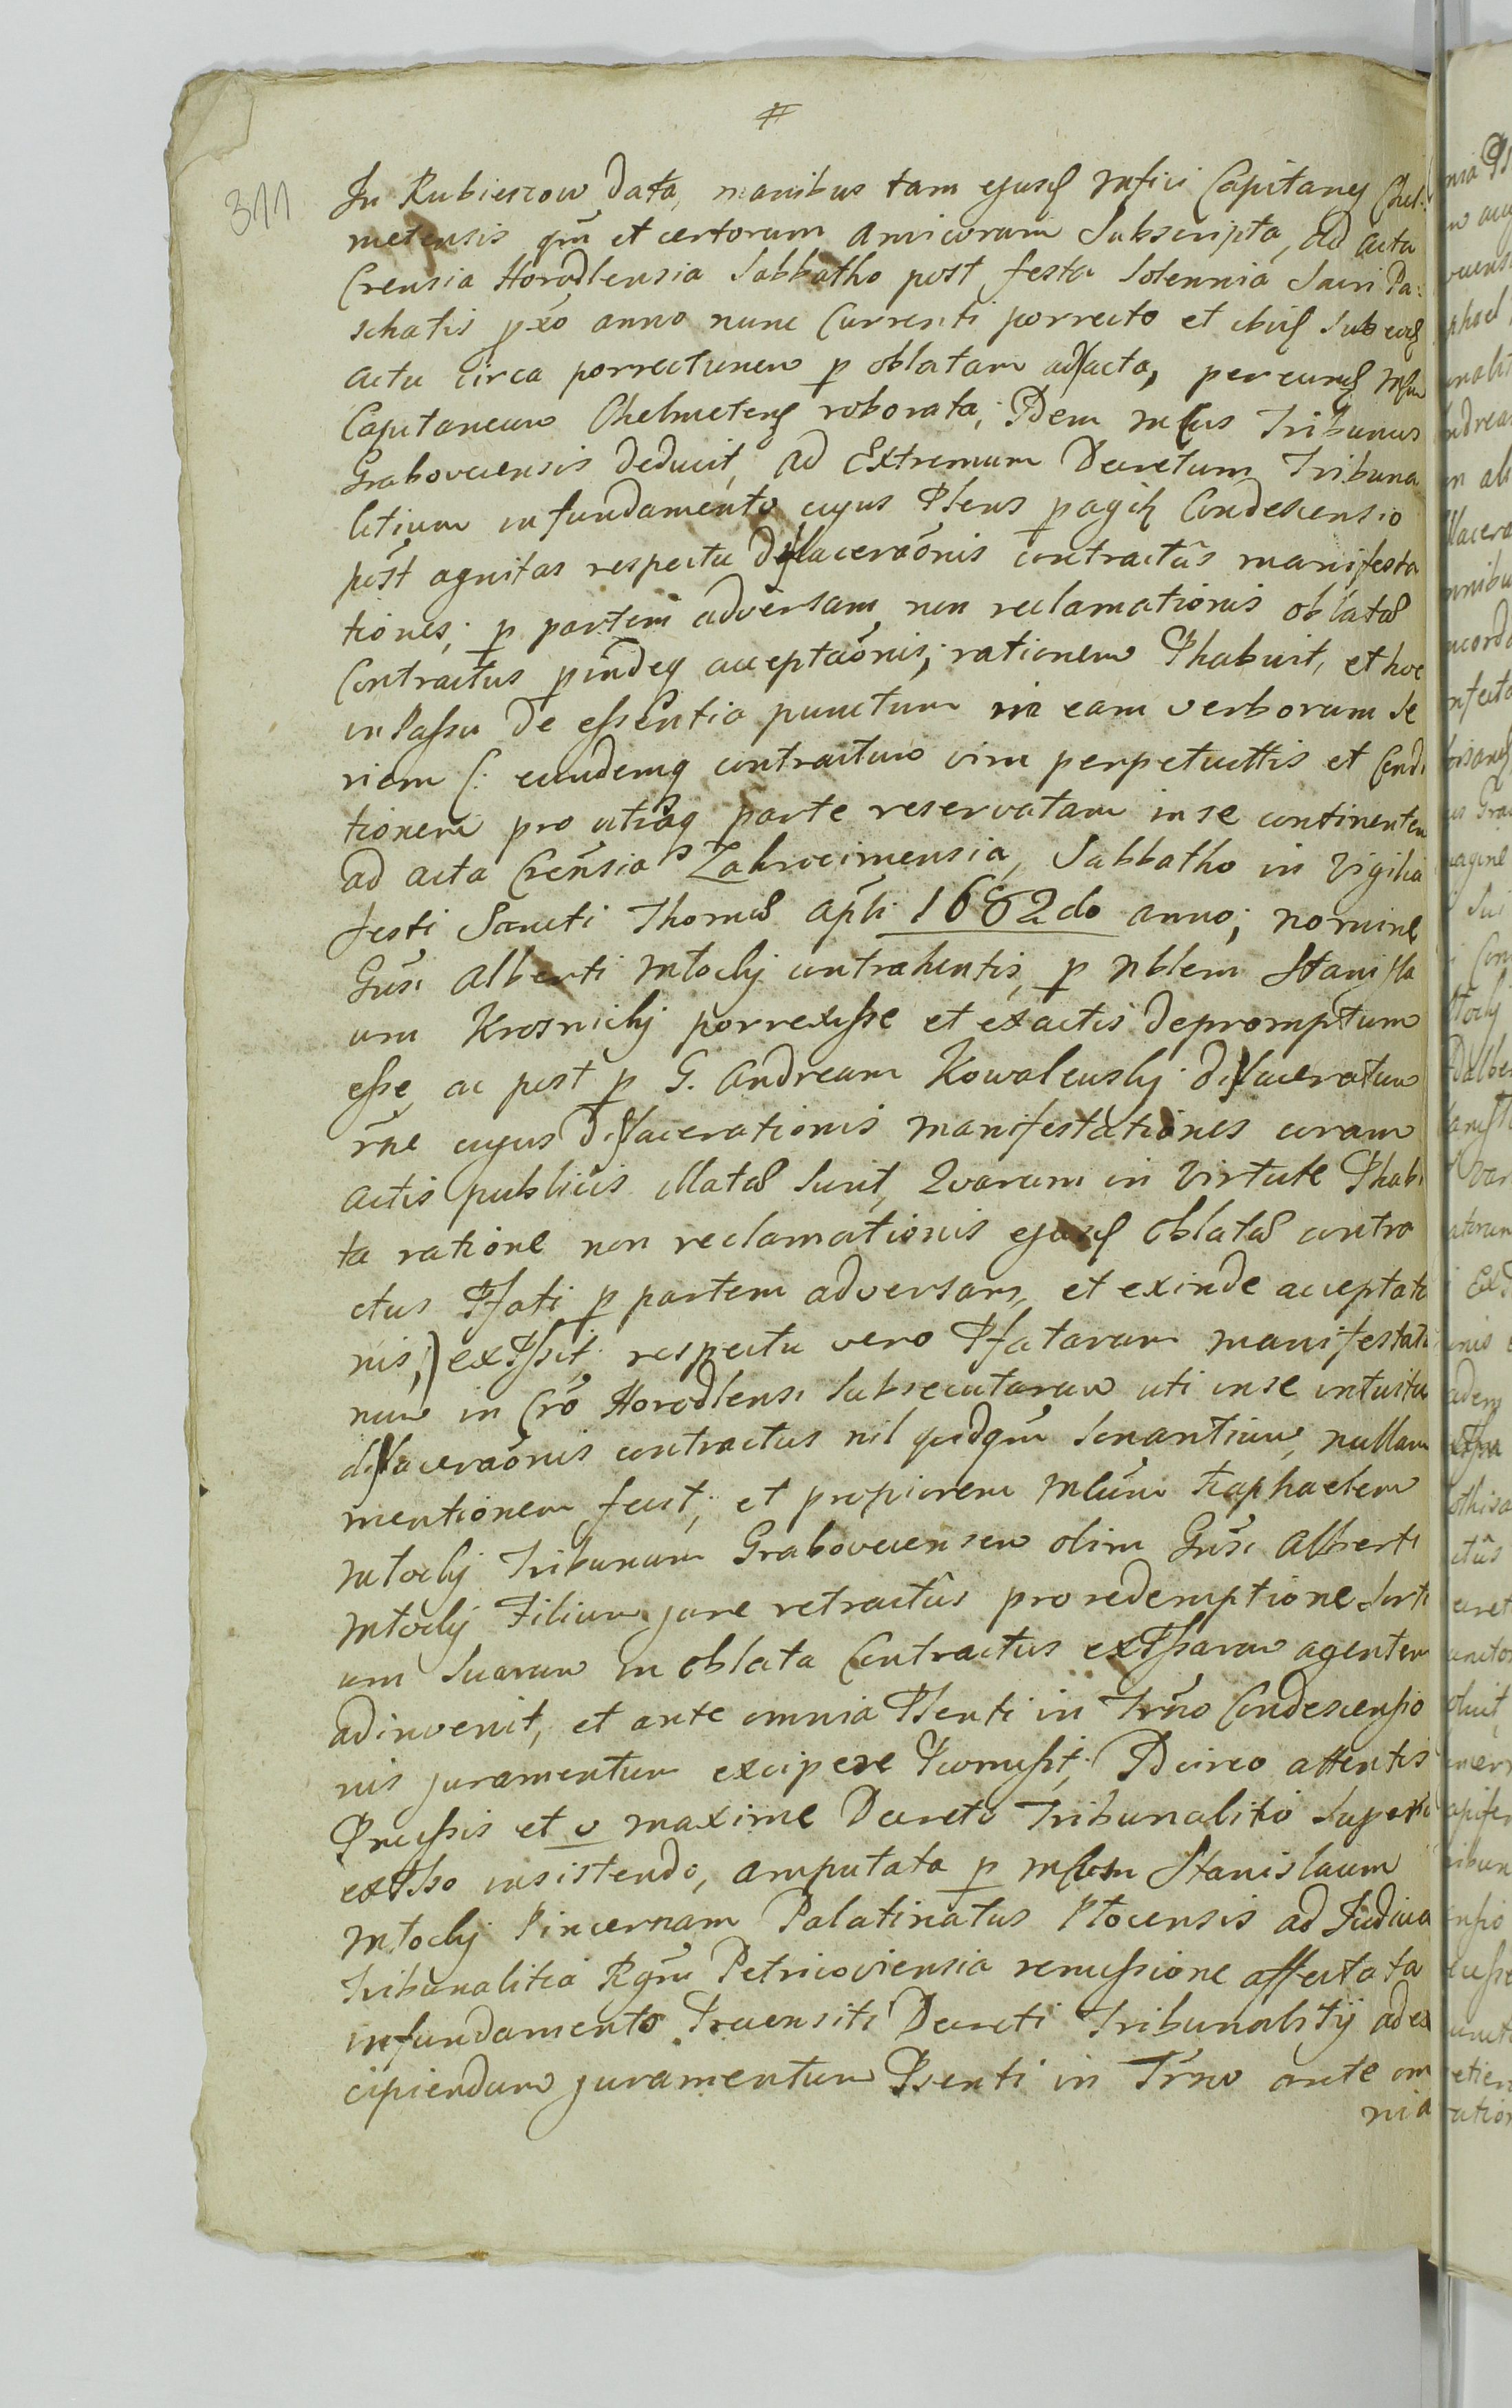 #
311
In Rubieszow data, manibus tam ejusq Mfici Capitanej Chel:
metensis qm et certorum Amicorum Subscripta, ad acta
Crensia Horodlensia Sabbatho post festa Solennia Sacri Pa:
schatis pxo anno nunc Currenti porrecto et ibiq Sub eoq
actu circa porrectionem p oblatam ad acta, per eunq Mfum
Capitaneum Chelmetens roborata; Idem Mfcus Tribunus
Graboveciensis deducit, ad Extremum Decretum Tribuna
litium in fundamento cujus Psens pagit Condescensio
post agnitas respectu dislaceraonis contractûs manifesta
tiones; p partem adversam non reclamationis oblatæ
Contractus pindeq acceptaonis; rationem Phabuit, et hoc
in Passu de essentia punctum in eam verborum Se
riem (: eundemq contractum vim perpetuittis et Condi
tionem pro utraq parte reservatam in se continentem
ad acta Crensia Zakrocimensia, Sabbatho in Vigilia
festi Sancti Thomæ apli 1682do anno; nomine
Gnsi Alberti Młocky contrahentis, p Nblem Stanisla
um Krosnicky porrexisse et ex actis depromptum
esse, ac post p G. Andream Kowalewsky dislaceratum
rne cujus dislacerationis manifestationes coram
actis publicis illatæ Sunt, Quarum in virtute Phabi
ta ratione non reclamationis ejusq oblatæ contra
ctus Pfati p partem adversam, et exinde acceptatio
nis;) exPssit; respectu vero Pfatarum manifestatio
num in Cro Horodlensi Subsecutarum uti in se intuitu
dislaceraonis contractus nil quidqm Sonantium, nullam
mentionem fecit; et propiorem Mfcum Raphaelem
Młocky Tribunum Graboveciensem olim Gnsi Alberti
Młocky Filium jure retractûs pro redemptione Sorti
um Suarum in oblata Contractus exPssarum agentem
adinvenit, et ante omnia Psenti in Trno Condescensio
nis juramentum excipere Pcomisit; Idcirco attentis
Pmissis et v maxime Decreto Tribunalitio Superius
exPsso insistendo, amputata p Mfcum Stanislaum
Młocky Pincernam Palatinatus Plocensis ad Judicia
Tribunalitia Rgni Petricoviensia remissione affectata
in fundamento Precensiti Decreti Tribunalitij ad ex
cipiendum juramentum Psenti in Trno ante om
nia